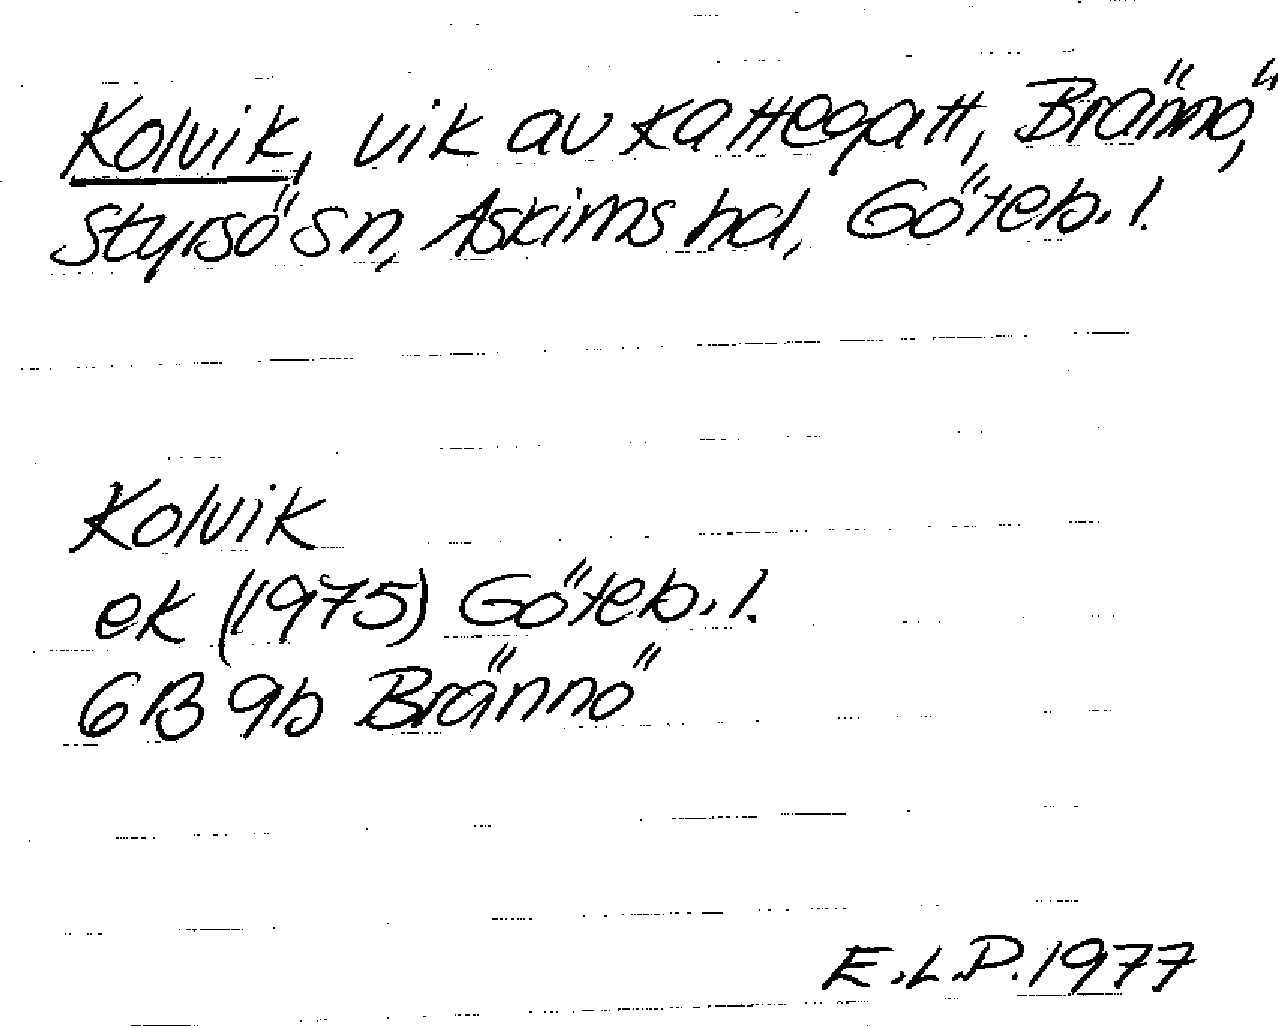 Kolvik, vik av Kattegatt, Brännö,
Styrsö sn, Askims hd, Göteb. l.
Kolvik
ek (1975) Göteb. l.
6B 9b Brännö
E.L.P. 1977